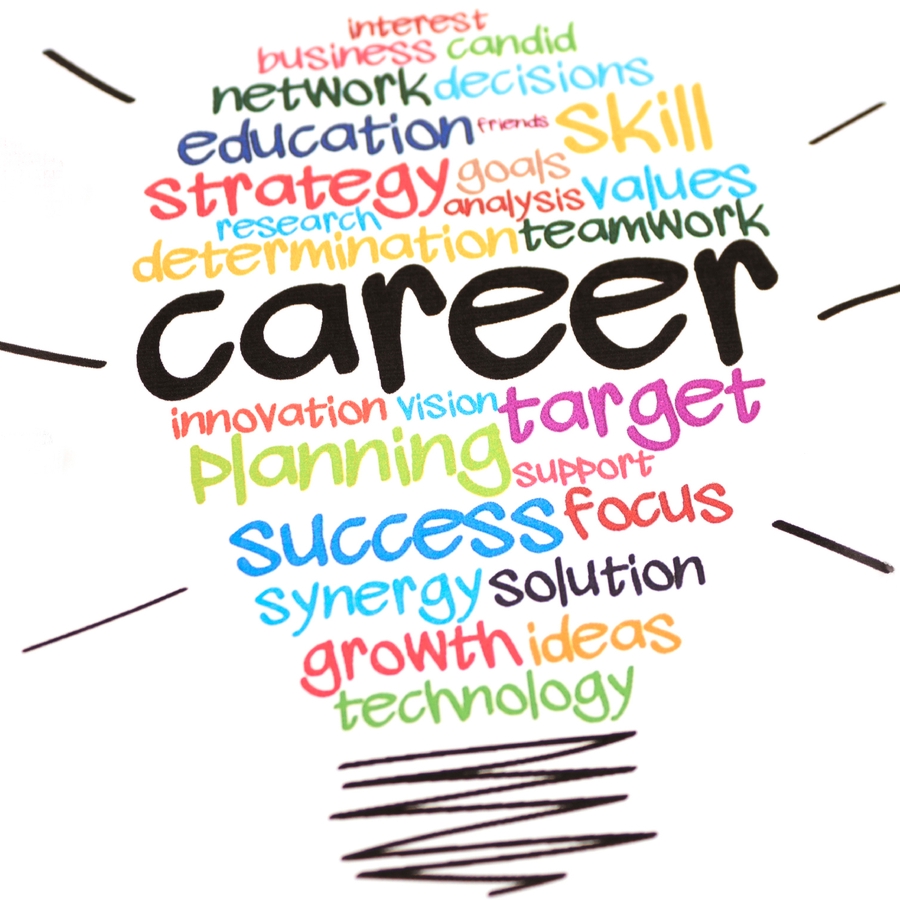 interest
business candid
network decisions
education friends skill
strategy goals
analysis values
research teamwork
determination
career
innovation vision target
planning support
success focus
synergy solution
growth ideas
technology